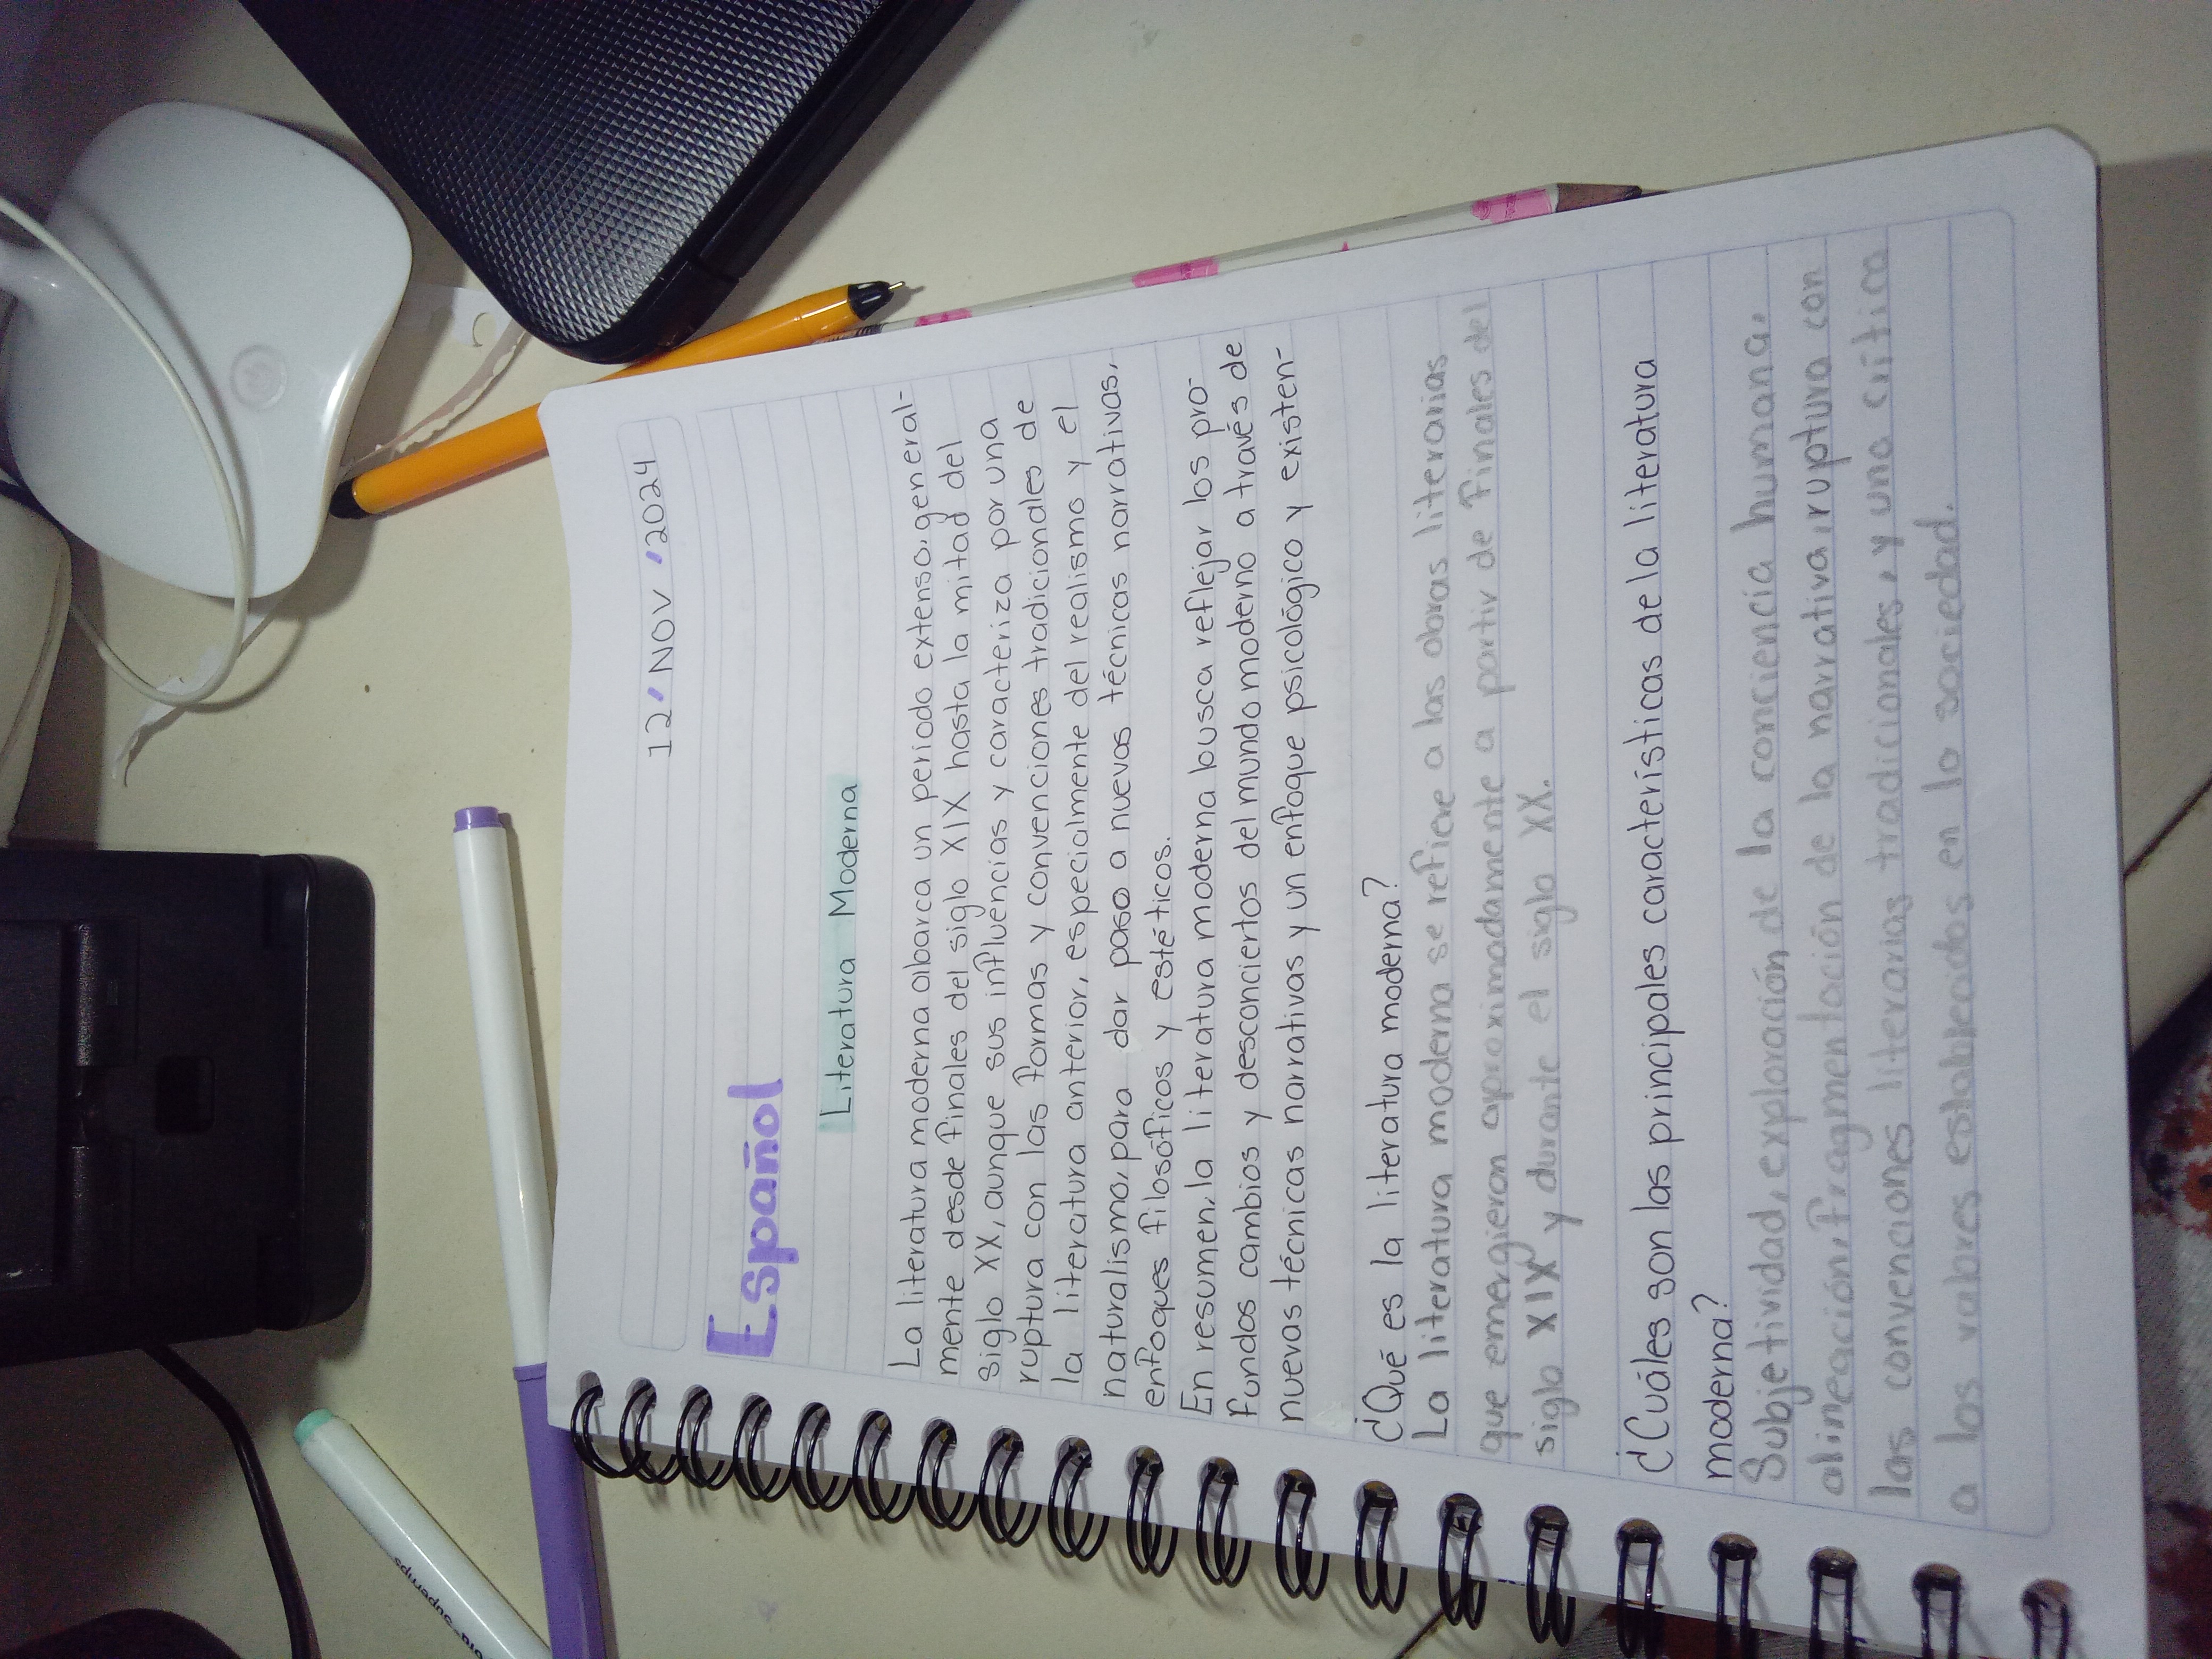 12 / NOV / 2024
Español
Literatura Moderna
La literatura moderna abarca un periodo extenso, general-
mente desde finales del siglo XIX hasta la mitad del
siglo XX, aunque sus influencias y caracteriza por una
ruptura con las formas y convenciones tradicionales de
la literatura anterior, especialmente del realismo y el
naturalismo, para dar paso a nuevas técnicas narrativas,
enfoques filosóficos y estéticos.
En resumen, la literatura moderna busca reflejar los pro-
fundos cambios y desconciertos del mundo moderno a través de
nuevas técnicas narrativas y un enfoque psicológico y existen-
¿Qué es la literatura moderna?
La literatura moderna se refiere a las obras literarias
que emergieron aproximadamente a partir de finales del
siglo XIX y durante el siglo XX.
¿Cuáles son las principales características de la literatura
moderna?
Subjetividad, exploración de la conciencia humana,
alineación, fragmentación de la narrativa, ruptura con
las convenciones literarias tradicionales, y una crítica
a los valores establecidos en la sociedad.